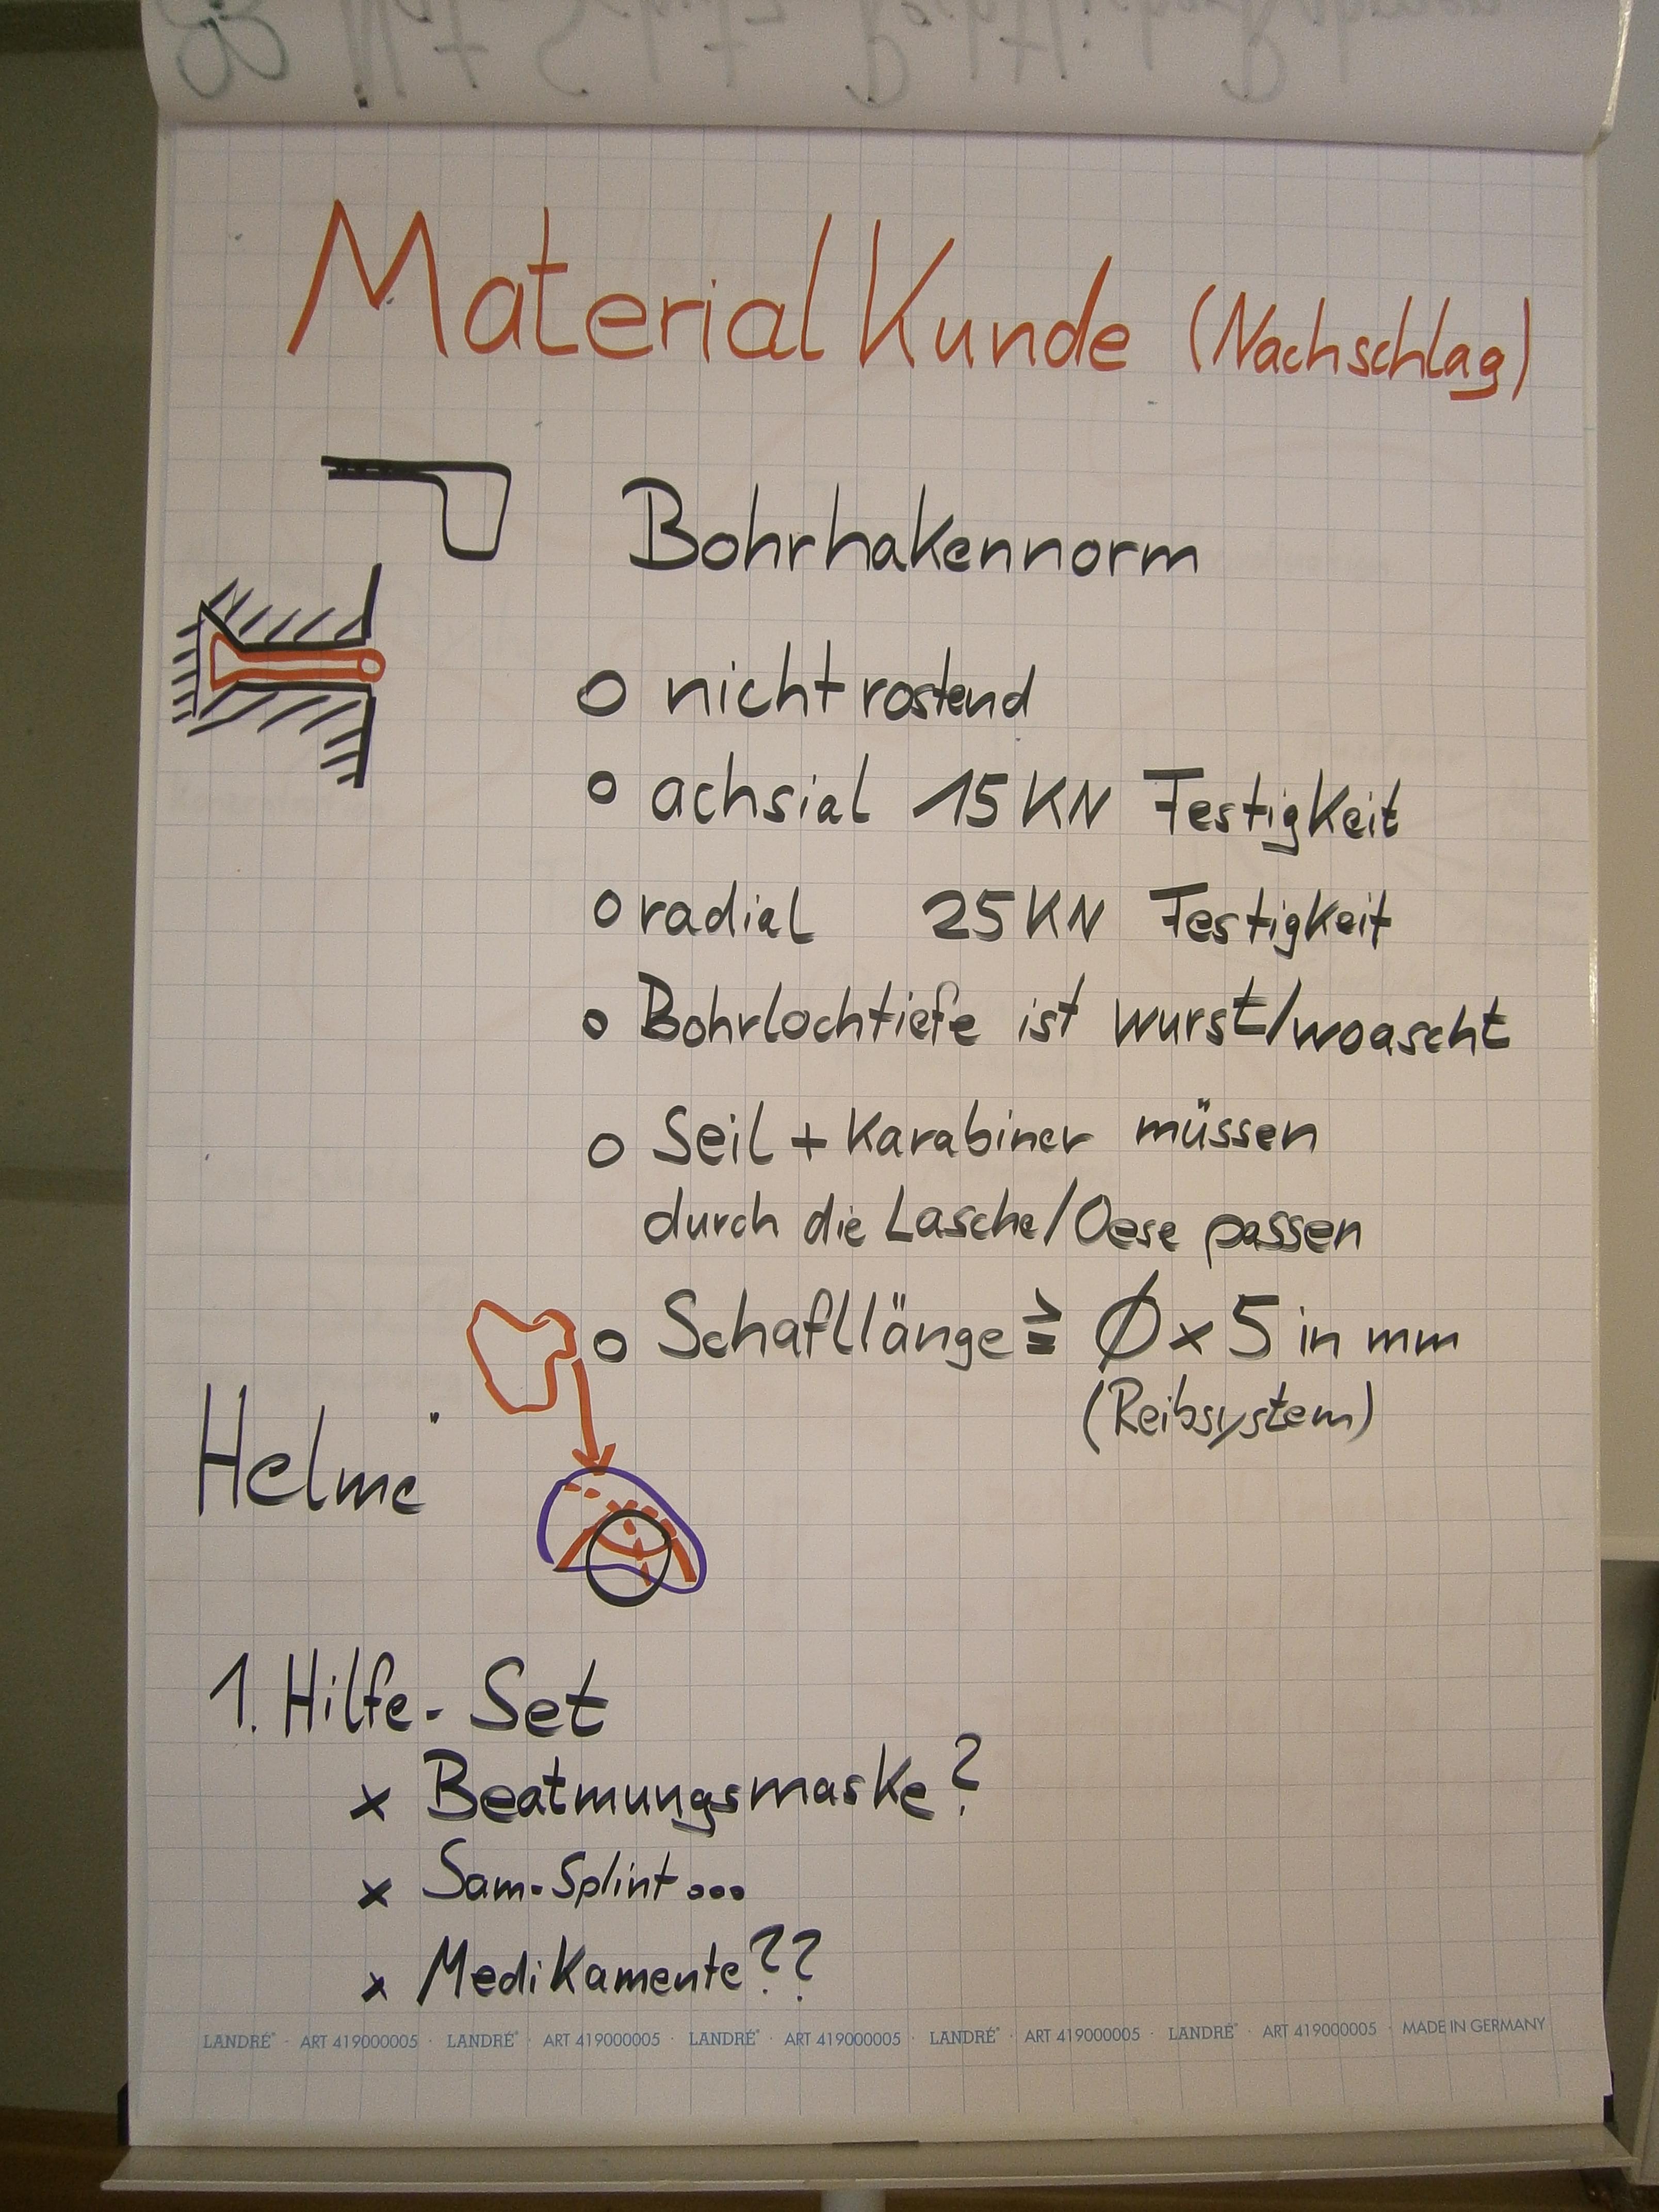 Materialkunde (Nachschlag)
Bohrhakennorm
o nicht rostend
o achsial 15 KN Festigkeit
o radial 25 KN Festigkeit
o Bohrlochtiefe ist wurst/woascht
o Seil + Karabiner müssen
durch die Lasche/Oese passen
o Schafllänge ≧ Ø x 5 in mm
(Reibsystem)
Helme
1. Hilfe-Set
x Beatmungsmaske?
x Sam-Splint...
x Medikamente??
LANDRÉ® · ART 419000005 · LANDRÉ® · ART 419000005 · LANDRÉ® · ART 419000005 · LANDRÉ® · ART 419000005 · LANDRÉ® · ART 419000005 · MADE IN GERMANY